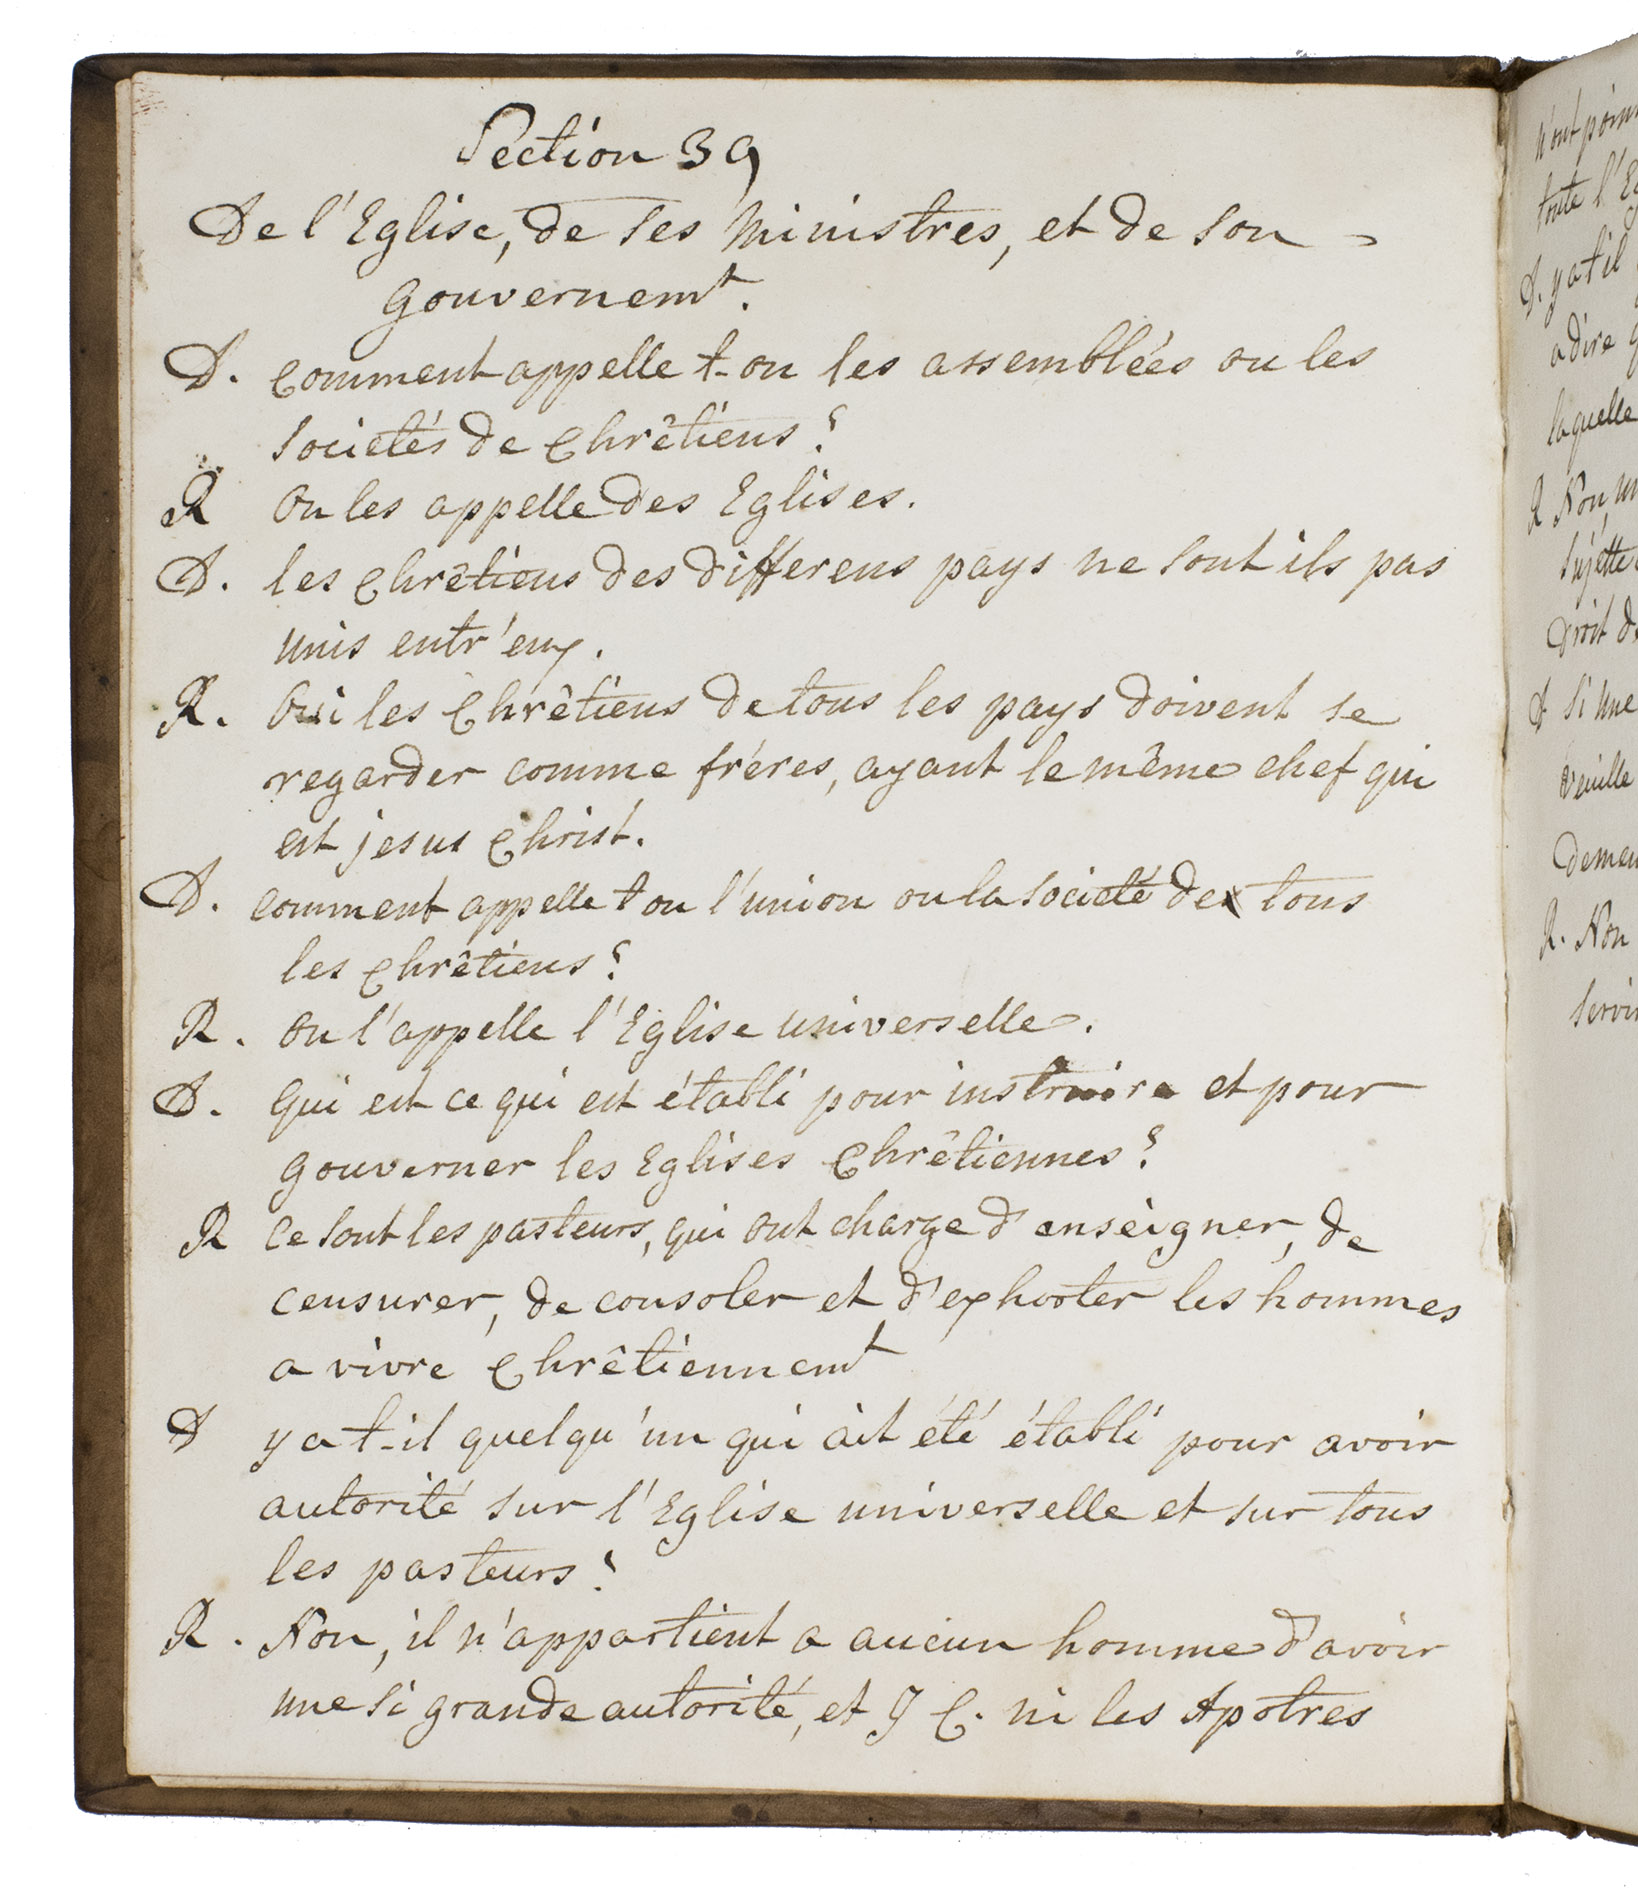 Section 39
De l'Eglise, de ses Ministres, et de son
Gouvernemt.
D. Comment appelle t-on les assemblées ou les
societés de Chrêtiens?
R On les appelle des Eglises.
D. les Chrêtiens des differens pays ne sont ils pas
unis entr'eux.
R. Oui les Chrêtiens de tous les pays doivent se
regarder comme fréres, ayant le même chef qui
est jesus Christ.
D. Comment appelle t on l'union ou la societé de tous
les Chrêtiens?
R. On l'appelle l'Eglise universelle.
D. Qui est ce qui est établi pour instruire et pour
Gouverner les Eglises Chrêtiennes?
R Ce sont les pasteurs, qui ont charge d'enseigner, de
censurer, de consoler et d'exhorter les hommes
a vivre Chrêtiennemt
D y a t-il quelqu'un qui ait été établi pour avoir
autorité sur l'Eglise universelle et sur tous
les pasteurs?
R. Non, il n'appartient a aucun homme d'avoir
une si grande autorité, et J C. ni les Apotres
n'ont
toute l'
D. y a t il
a dire
laquelle
R Non,
sujette
Droit
D Si une
veuille
R. Non